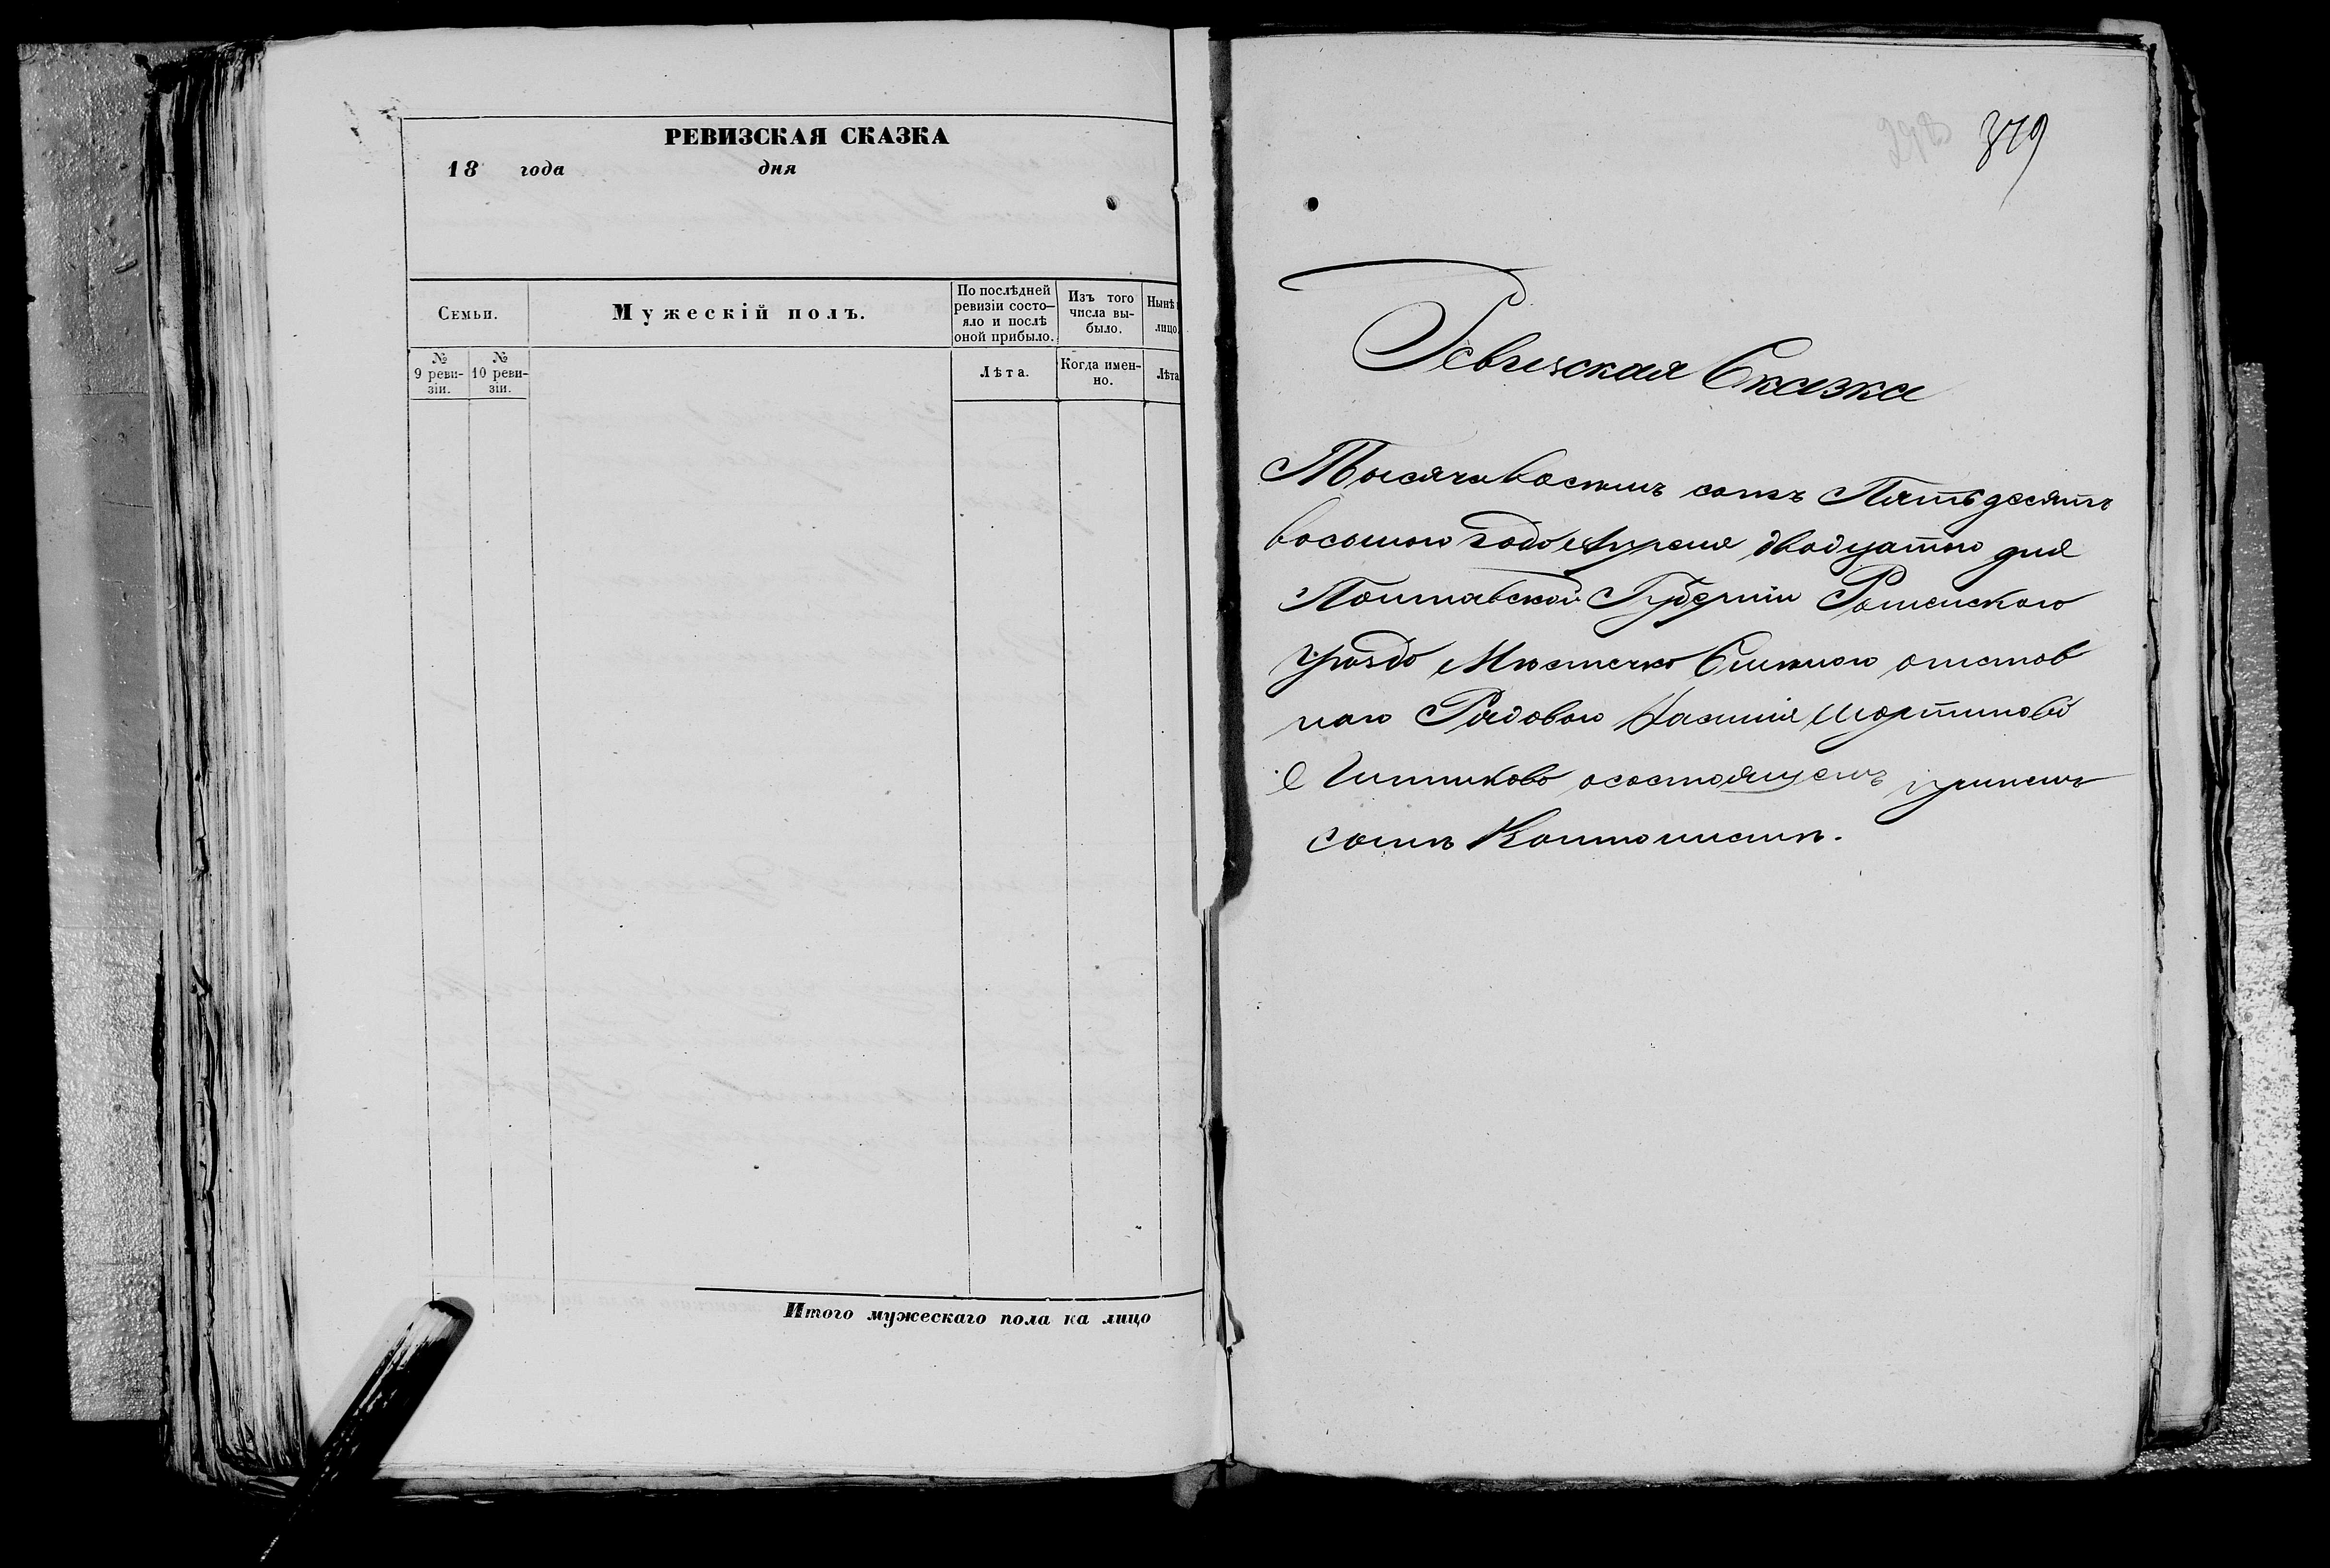 РЕВИЗСКАЯ СКАЗКА
18 года дня
Семьи.
Мужескій полъ.
По послѣдней
ревизіи состо-
яло и послѣ
оной прибыло.
Изъ того
числа вы-
было.
Нынѣ
лицо
№
9 реви-
зіи.
№
10 реви-
зіи.
Лѣта.
Когда имен-
но.
Лѣта
Итого мужескаго пола на лицо
379
Ревизская Сказка
Тысяча восемъ сотъ Пятьдесятъ
восьмого года Апреля двадцатого дня
Полтавской Губерніи Роменского
уѣзда Мѣстечка Смелого отстав
ного Рядового Мартинова
осостоящемъ принемъ
сынѣ Кантонистѣ.